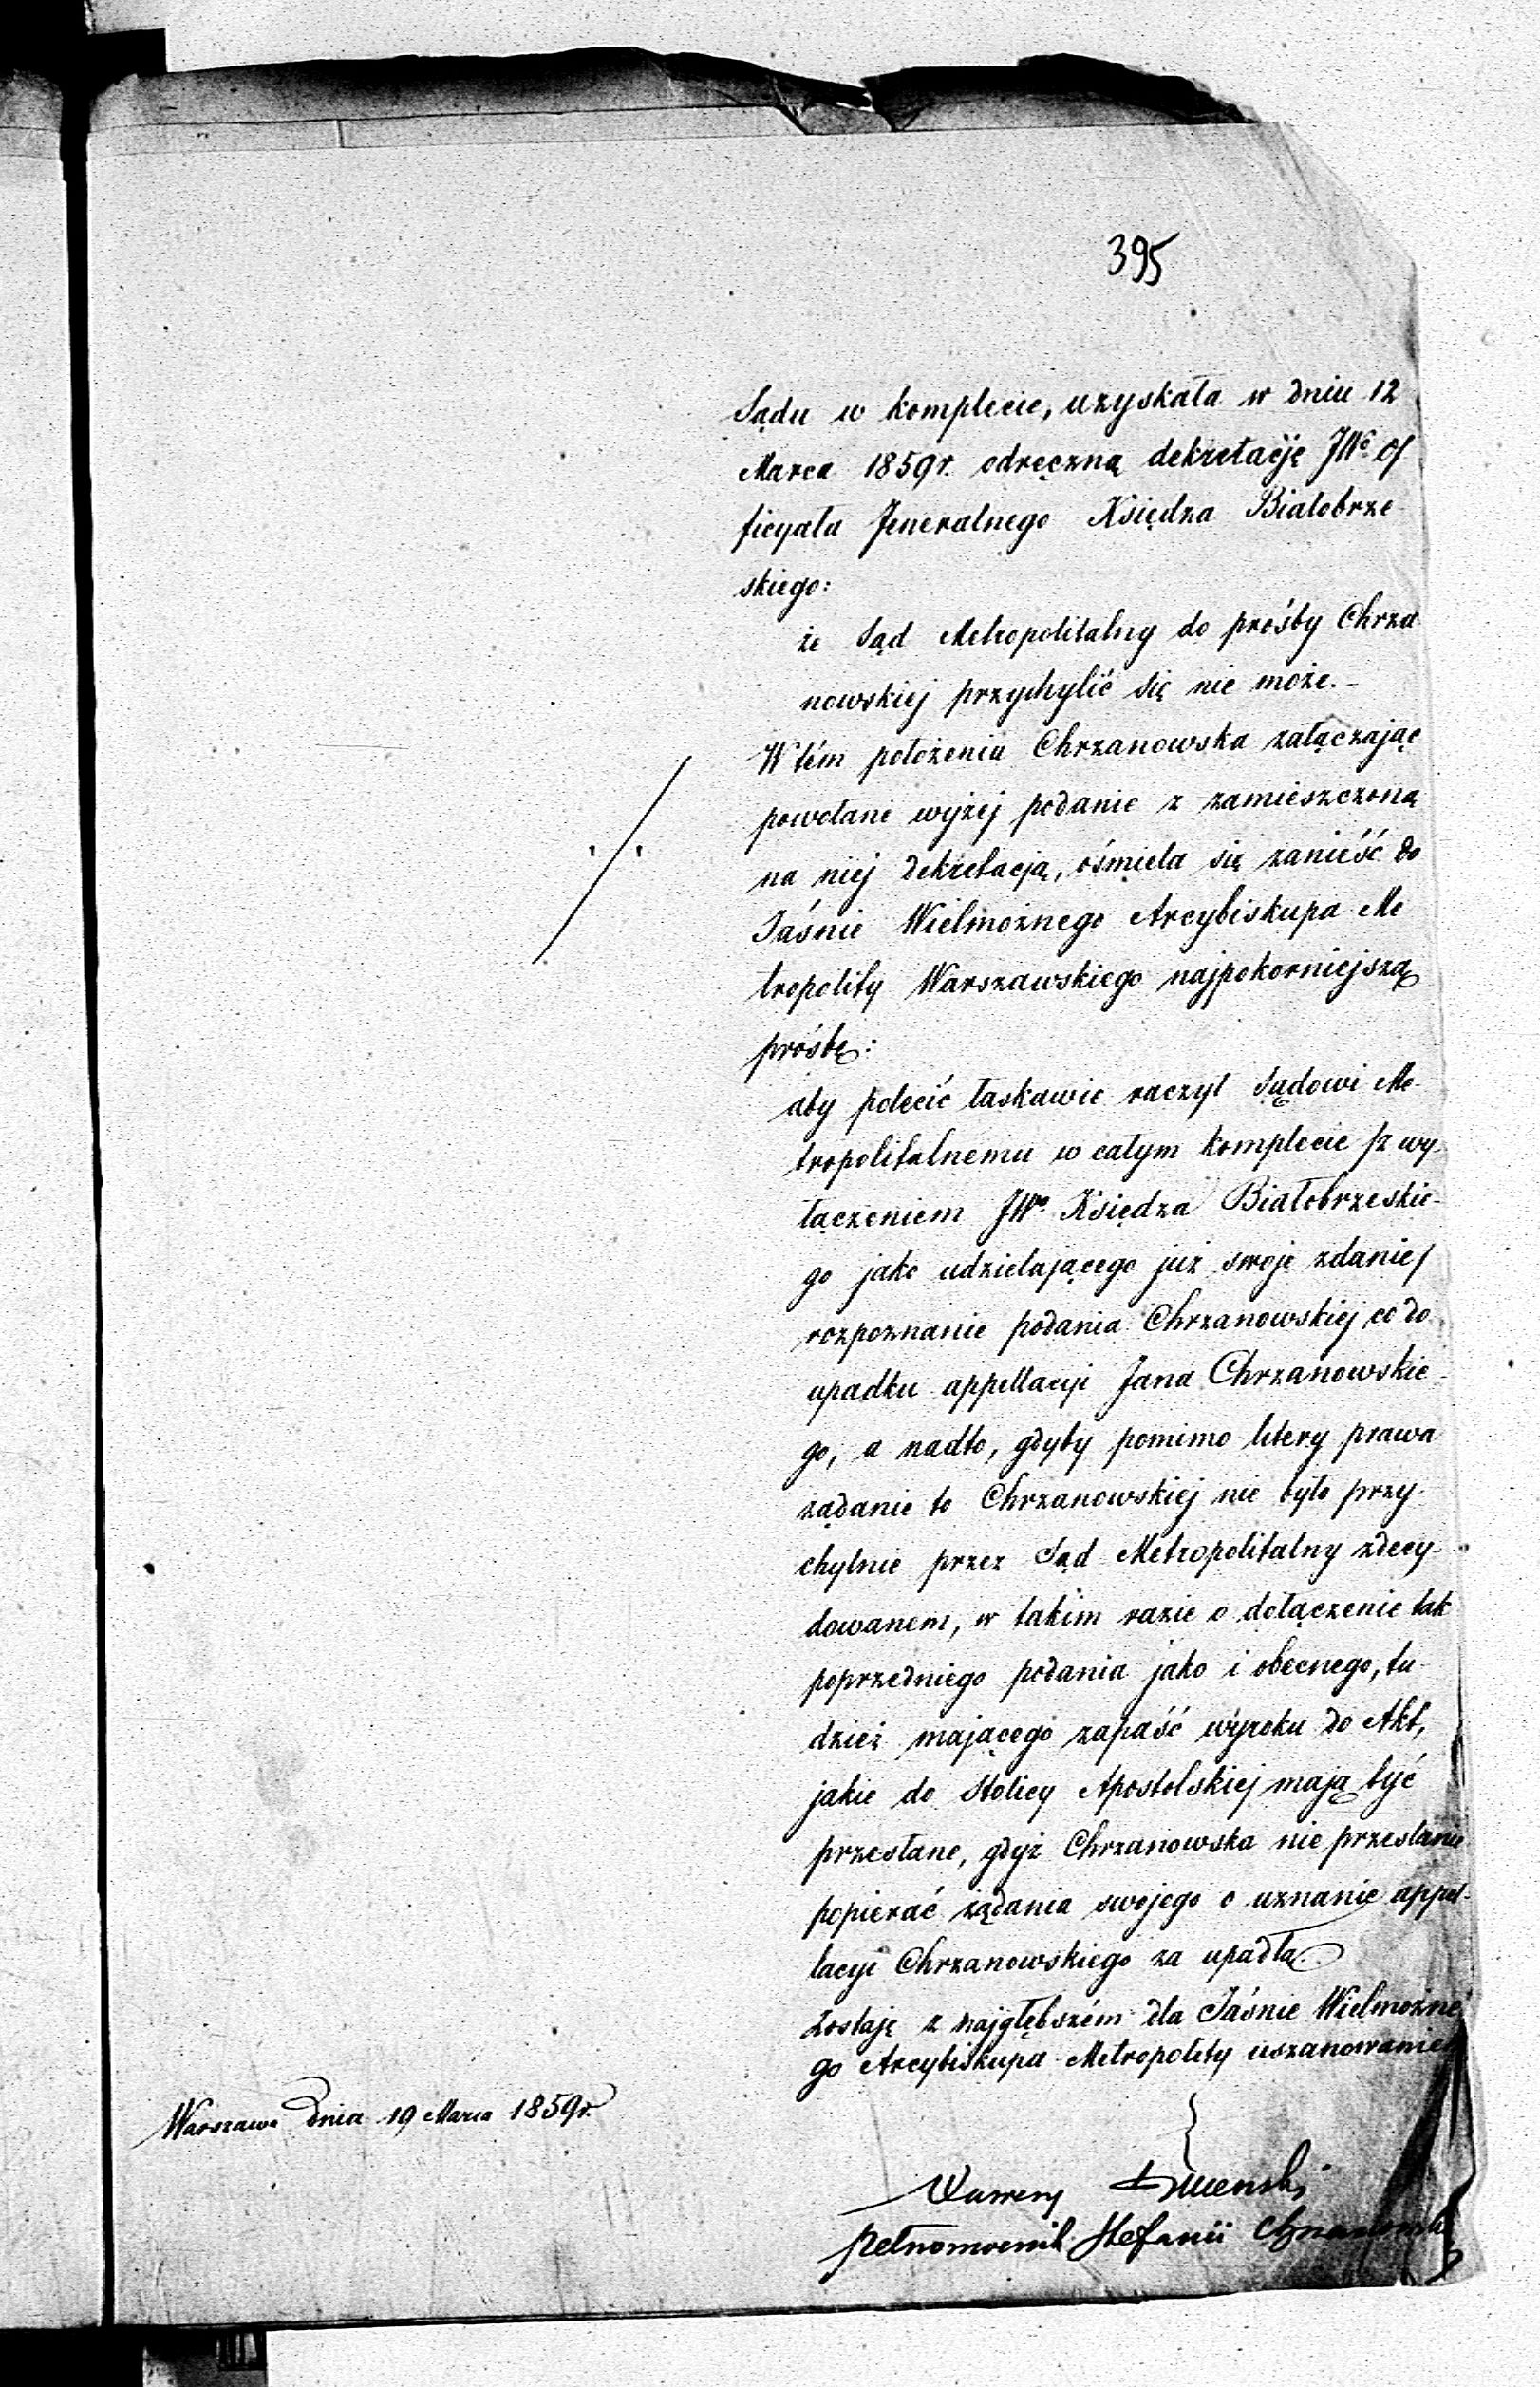 395
Sądu w komplecie, uzyskała w dniu 12
Marca 1859 r. odręczną dekretacÿę JWo Of
ficyała Jeneralnego Księdza Białobrze
skiego:
że Sąd Metropolitalny do prośby Chrza
nowskiej przychylić się nie może. –
W tém położeniu Chrzanowska załączając
powołane wyżej podanie z zamieszczoną
na niej dekretacją, ośmiela się zanieść do
Jaśnie Wielmożnego Arcybiskupa Me
tropolity Warszawskiego najpokorniejszą
prośbę:
aby polecić łaskawie raczył Sądowi Me-
tropolitalnemu w całym komplecie /z wy-
łączeniem JWo Księdza Białobrzeskie-
go jako udzielającego już swoje zdanie/
rozpoznanie podania Chrzanowskiej co do
upadku appellacyi Jana Chrzanowskie-
go, a nadto, gdyby pomimo litery prawa
żądanie to Chrzanowskiej nie było przy-
chylnie przez Sąd Metropolitalny zdecy-
dowanem, w takim razie o dołączenie tak
poprzedniego podania jako i obecnego, tu-
dzież mającego zapaść wyroku do Akt,
jakie do Stolicy Apostolskiej mają być
przesłane, gdyż Chrzanowska nie przestanie
popierać żądania swojego o uznanie appel-
lacyi Chrzanowskiego za upadłą.
Zostaję z najgłębszém dla Jaśnie Wielmożne
go Arcybiskupa Metropolity uszanowaniem
Warszawa dnia 19 Marca 1859 r.
pełnomocnik Stefanii Chrzanowski